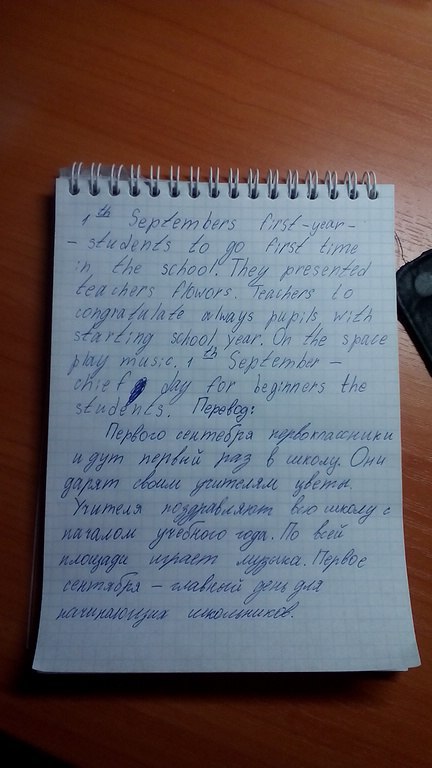 1th Septembers first-year-
- students to go first time
in the school. They presented
teachers flowors. Teachers to
congratulate always pupils with
starting school year. On the space
play music. 1th September –
chief day for beginners the
students. Перевод:
Первого сентебря первоклассники
идут первый раз в школу. Они
дарят своим учителям цветы.
Учителя поздравляют всю школу с
началом учебного года. По всей
площади играет музыка. Первое
сентября – главный день для
начинающих школьников.